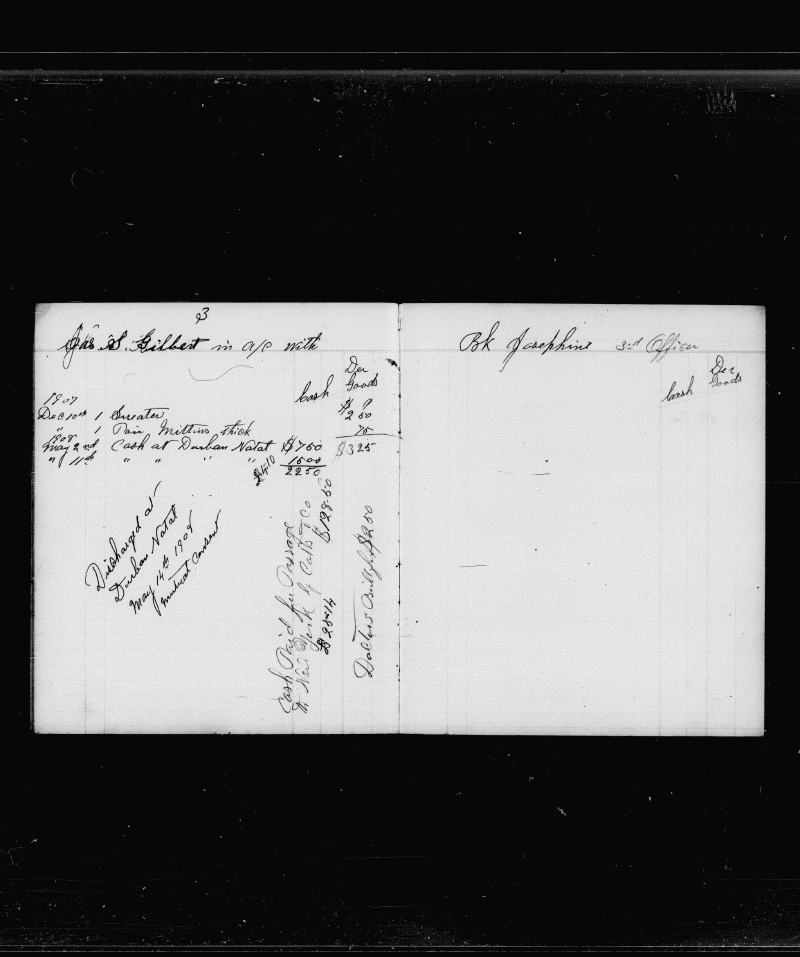 3
Jas. S. Gilbert in a/c with
Der
Cash Goods
1907 $ ¢
Dec 10th 1 Sweater 2 50
" 1 Pair Mittins thick 75
1908
May 2nd Cash at Durban Natal $7 50 $3 25
" 11th " " " " 15 00
22 50
Discharged at
Durban Natal
May 14th 1908
mutual consent
Cash Paid for Passage
to New York by Co
$129.50
Doctors Bill $2 50
Bk Josephine 3rd Officer
Der
Cash Goods